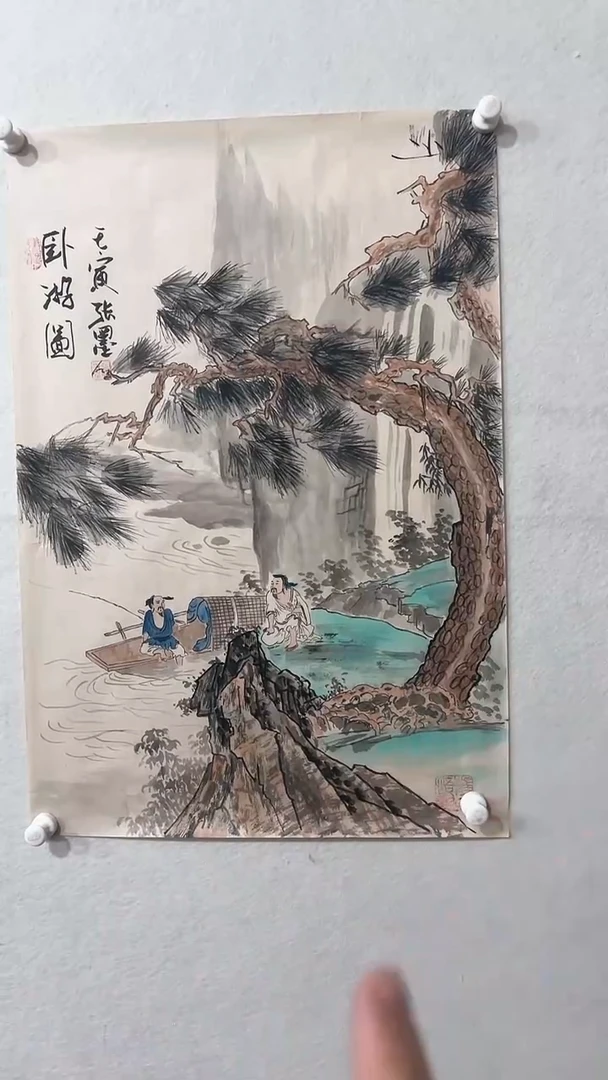 卧游圖
壬寅张墨